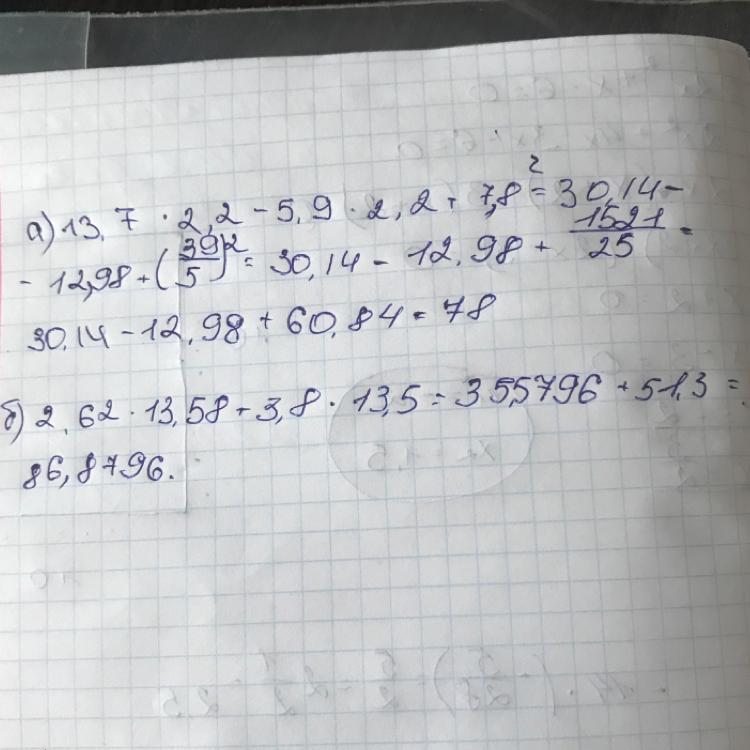 а) 13,7 · 2,2 - 5,9 · 2,2 + 7,8² = 30,14 -
- 12,98 + (39/5)² = 30,14 - 12,98 + 1521/25 =
30,14 - 12,98 + 60,84 = 78
б) 2,62 · 13,58 + 3,8 · 13,5 = 35,5796 + 51,3 =
86,8796.